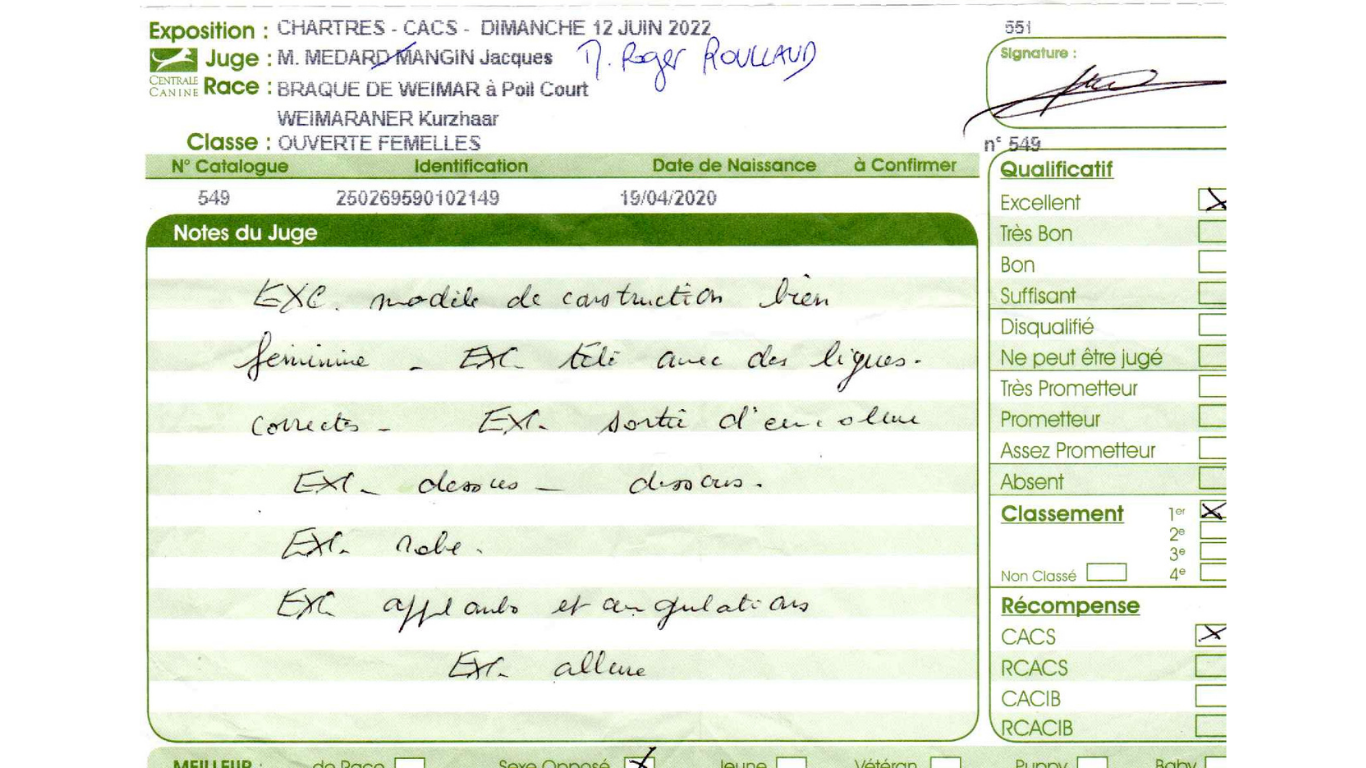 Exposition : CHARTRES - CACS - DIMANCHE 12 JUIN 2022
551
Juge : M. MEDARD MANGIN Jacques M. Roger ROULLAUD
Signature :
CENTRALE CANINE
Race : BRAQUE DE WEIMAR à Poil Court
WEIMARANER Kurzhaar
Classe : OUVERTE FEMELLES
n° 549
N° Catalogue Identification Date de Naissance à Confirmer
549 250269590102149 19/04/2020
Notes du Juge
EXC. modèle de construction bien
féminine - EXC. tête avec des lignes.
correctes - EXC. sortie d'encolure
EXC. dessus - dessous.
EXC. robe.
EXC applombs et angulations
EXC. allure
Qualificatif
Excellent
Très Bon
Bon
Suffisant
Disqualifié
Ne peut être jugé
Très Prometteur
Prometteur
Assez Prometteur
Absent
Classement 1er
2e
3e
Non Classé 4e
Récompense
CACS
RCACS
CACIB
RCACIB
MEILLEUR : de Race Sexe Opposé Jeune Vétéran Puppy Baby